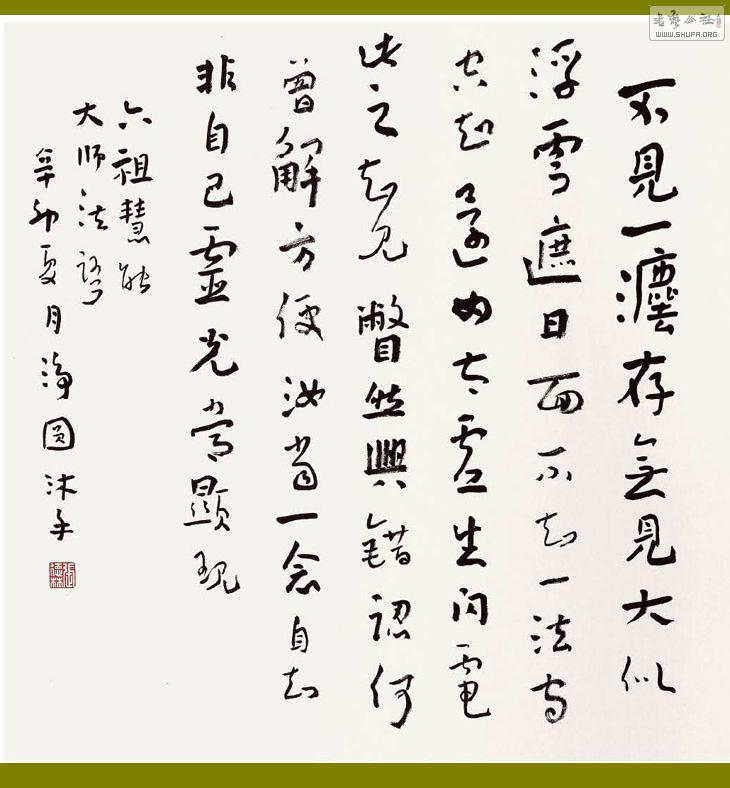 不見一灋存無見大似
浮雲遮日面不知一法守
空知還如太虛生閃電
此之知見瞥然興錯認何
曾解方便汝當一念自知
非自己靈光常顯現
六祖慧能
大師法語
辛卯夏月淨圓沐手
WWW.SHUFA.ORG